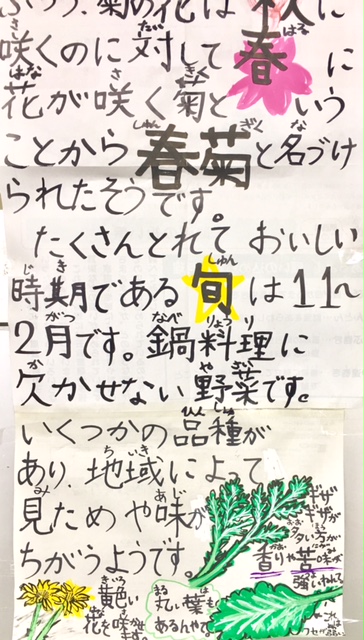 ふつう、菊の花は秋に
咲くのに対して春に
花が咲く菊という
ことから春菊と名づけ
られたそうです。
たくさんとれて おいしい
時期である旬は11〜
2月です。鍋料理に
欠かせない野菜です。
いくつかの品種が
あり、地域によって
見ためや味が
ちがうようです。
ギザギザが
多い方が
香りや苦味が
強いんやて
黄色い
花を咲かせます
丸い葉も
あるんやで